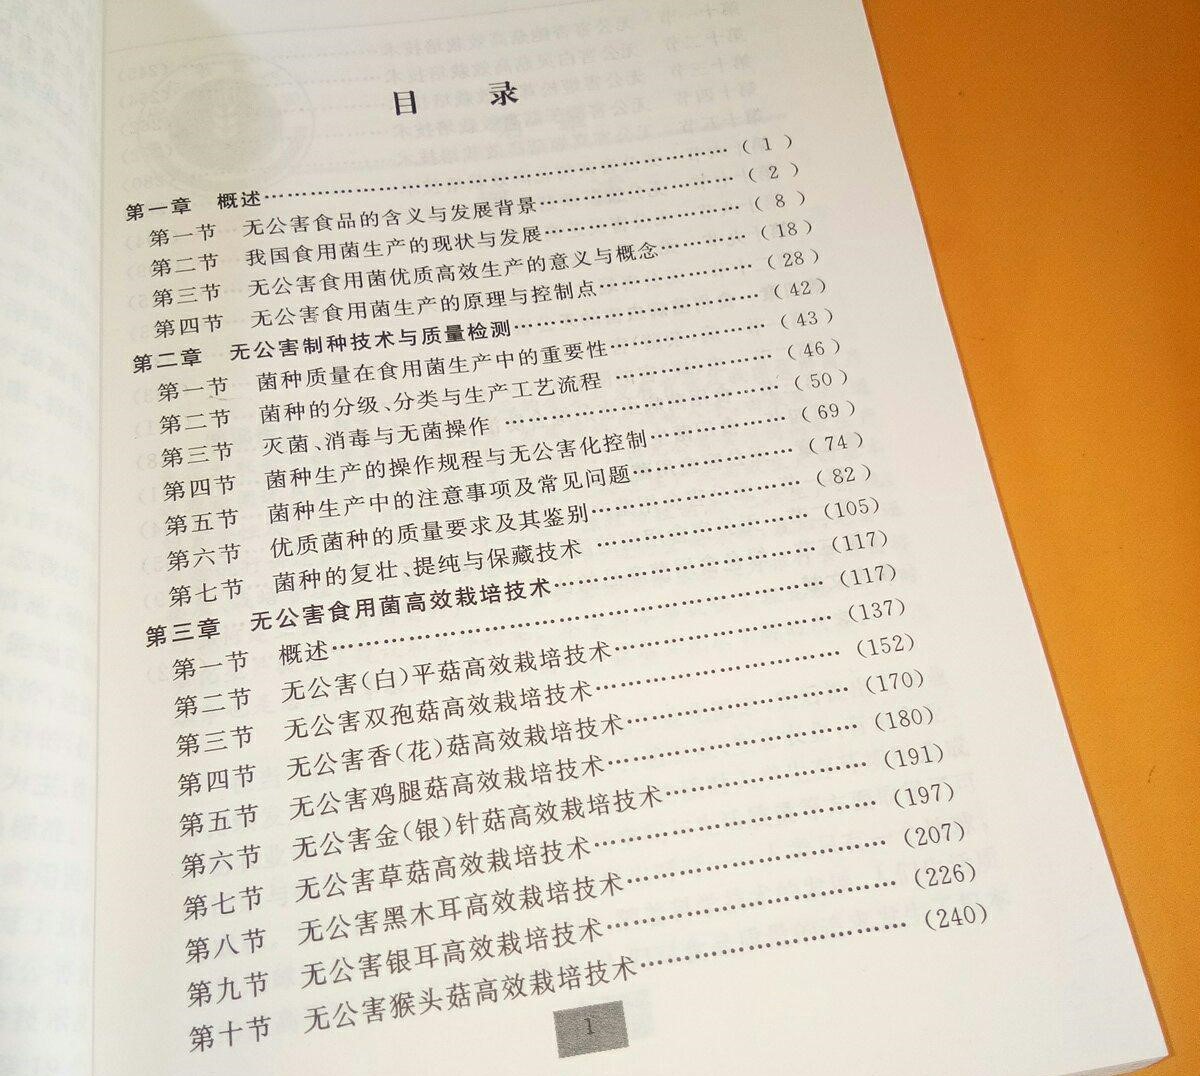 目 录
第一章 概述……………………………………………………(1)
第一节 无公害食品的含义与发展背景……………………(2)
第二节 我国食用菌生产的现状与发展……………………(8)
第三节 无公害食用菌优质高效生产的意义与概念…………(18)
第四节 无公害食用菌生产的原理与控制点………………(28)
第二章 无公害制种技术与质量检测…………………………(42)
第一节 菌种质量在食用菌生产中的重要性………………(43)
第二节 菌种的分级、分类与生产工艺流程………………(46)
第三节 灭菌、消毒与无菌操作……………………………(50)
第四节 菌种生产的操作规程与无公害化控制……………(69)
第五节 菌种生产中的注意事项及常见问题………………(74)
第六节 优质菌种的质量要求及其鉴别……………………(82)
第七节 菌种的复壮、提纯与保藏技术……………………(105)
第三章 无公害食用菌高效栽培技术…………………………(117)
第一节 概述…………………………………………………(117)
第二节 无公害(白)平菇高效栽培技术……………………(137)
第三节 无公害双孢菇高效栽培技术………………………(152)
第四节 无公害香(花)菇高效栽培技术……………………(170)
第五节 无公害鸡腿菇高效栽培技术………………………(180)
第六节 无公害金(银)针菇高效栽培技术…………………(191)
第七节 无公害草菇高效栽培技术…………………………(197)
第八节 无公害黑木耳高效栽培技术………………………(207)
第九节 无公害银耳高效栽培技术…………………………(226)
第十节 无公害猴头菇高效栽培技术………………………(240)
1